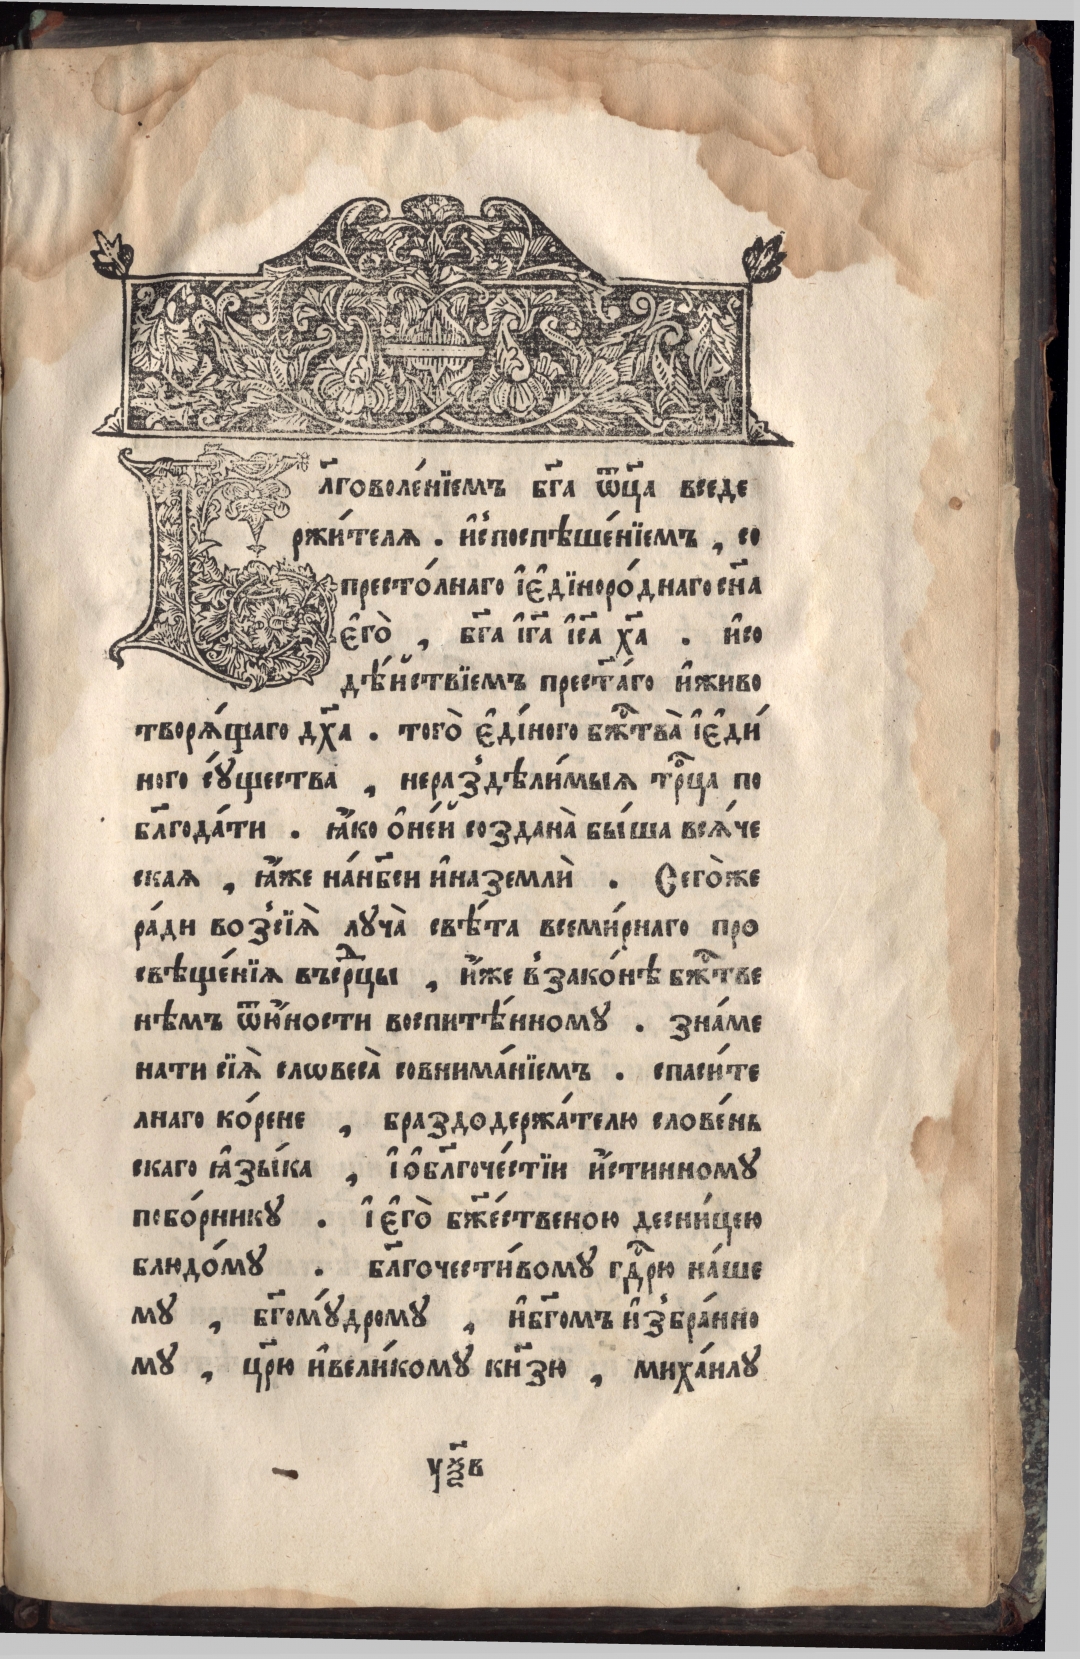 Бл҃говоле́нїемъ бг҃а ѿц҃а вседе
ржи́телѧ . и҆спосп҄ѣше́нїемъ , со
престо́лнаго і҆є҆дїноро́днаго сн҃а
є҆гѡ̀ , бг҃а і҆г҃а і҆с҃а х҃а . и҆со
дѣ́йствїемъ прест҃а́го и҆живо
творѧ́щаго дх҃а . того̀ є҆ді́ного бж҃тва̀ і҆є҆ди́
ного сꙋ́щества , нераздѣли́мыѧ трⷪ҇ца по
бл҃года́ти . ꙗ҆́ко ѻ҆не́й создана̀ бы́ша всѧ́че
скаѧ , ꙗ҆́же на́нб҃си и҆наземлѝ . Сего̀же
ра́ди возсїѧ̀ лꙋча̀ свѣ́та всеми́рнаго про
свѣще́нїѧ въсрⷣцы , и҆́же взако́нѣ бжⷭ҇тве
нѣмъ ѿю҆́ности воспитѣ́нномꙋ . зна́ме
нати сїѧ̀ словеса̀ совнима́нїемъ . спаси́те
лнаго ко́рене , браздодержа́телю слове́нь
скаго ꙗ҆зы́ка , і҆ѻ҆бл҃гоче́стїи и҆́стинномꙋ
побо́рникꙋ . і҆ є҆го̀ бж҃е́ственою десни́цею
блюдо́мꙋ . бл҃гочести́вомꙋ гдⷭ҇рю на́ше
мꙋ , бг҃омꙋ́дромꙋ , и҆бг҃омъ и҆збра́нно
мꙋ , цр҃ю и҆вели́комꙋ кн҃зю , миха́илꙋ
уѯ҃в